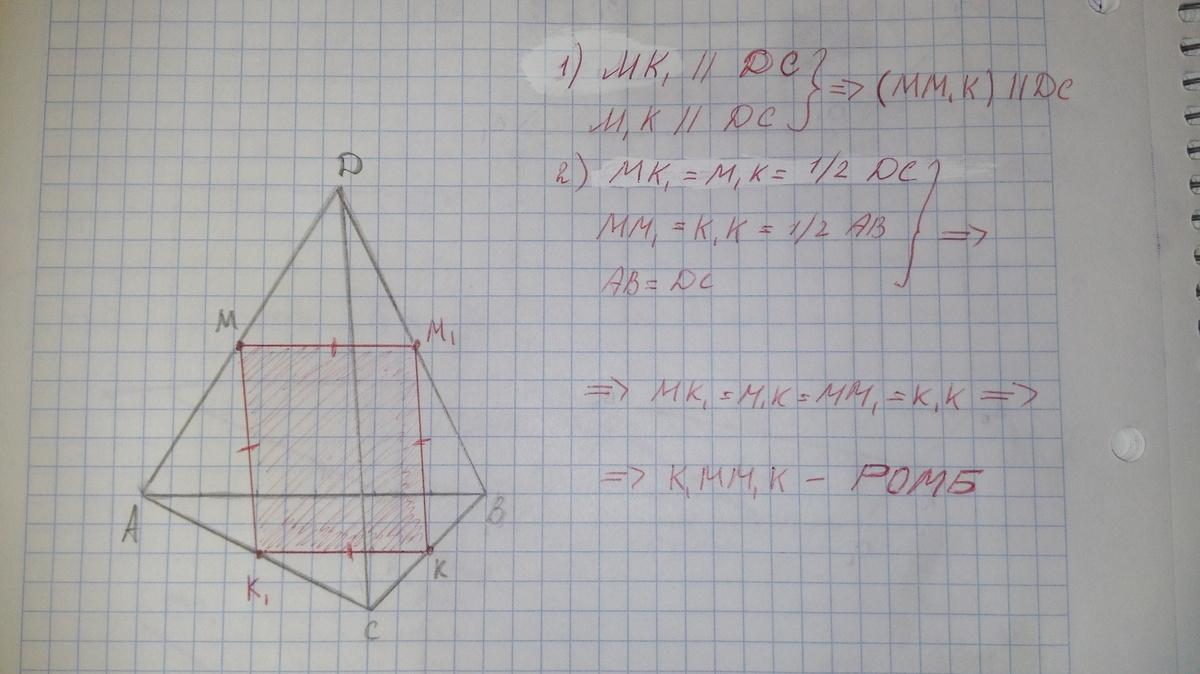 1) MK₁ || DC } => (MM₁K) || DC
M₁K || DC
2) MK₁ = M₁K = 1/2 DC
MM₁ = K₁K = 1/2 AB } =>
AB = DC
=> MK₁ = M₁K = MM₁ = K₁K =>
=> K₁MM₁K – РОМБ
D
M
M₁
A
B
K₁
K
C